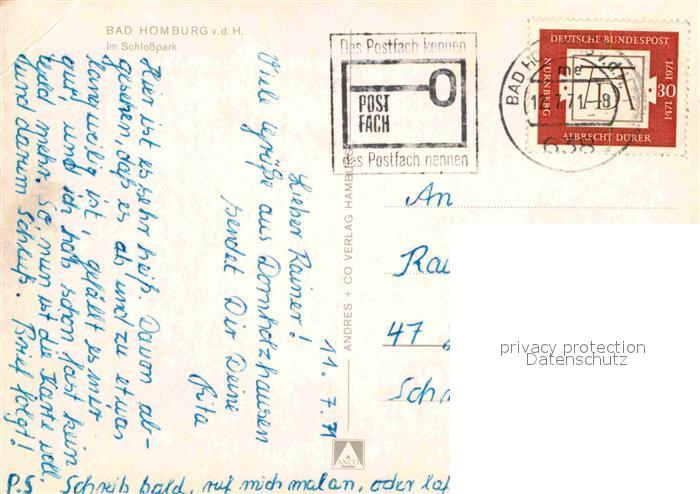 BAD HOMBURG v. d. H.
Im Schloßpark
Das Postfach kennen
POST
FACH
Das Postfach nennen
DEUTSCHE BUNDESPOST
NÜRNBERG
30
1471 1971
ALBRECHT DÜRER
BAD HO
638
ANDRES + CO VERLAG HAMBURG
ANCO
11.7.71
Lieber Rainer!
Viele Grüße aus Dornholzhausen
sendet Dir Deine
Rita
Hier ist es sehr heiß. Davon ab-
gesehen, daß es ab und zu etwas
langweilig ist, gefällt es mir
gut, und ich hab schon fast kein
Geld mehr. So, nun ist die Karte voll,
und darum Schluß. Brief folgt!
P.S. Schreib bald, ruf mich mal an, oder
An
Rai
47
Sch
privacy protection
Datenschutz